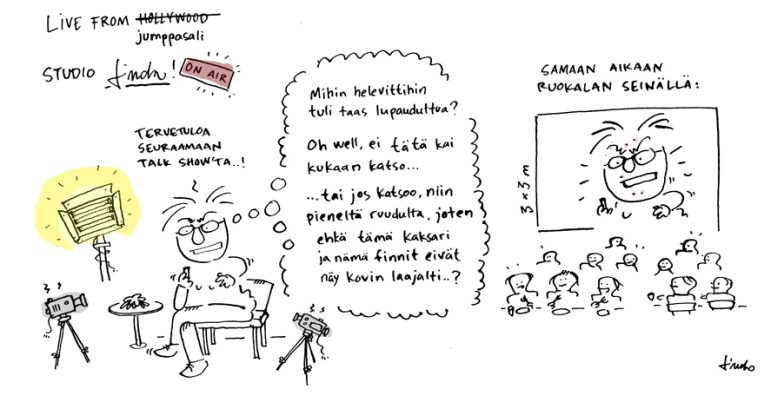 LIVE FROM HOLLYWOOD
jumppasali
STUDIO
ON AIR
TERVETULOA
SEURAAMAAN
TALK SHOW'TA..!
Mihin helevittihin
tuli taas lupauduttua?
Oh well, ei tätä kai
kukaan katso...
...tai jos katsoo, niin
pieneltä ruudulta, joten
ehkä tämä kaksari
ja nämä finnit eivät
näy kovin laajalti..?
SAMAAN AIKAAN
RUOKALAN SEINÄLLÄ:
3 x 3 m